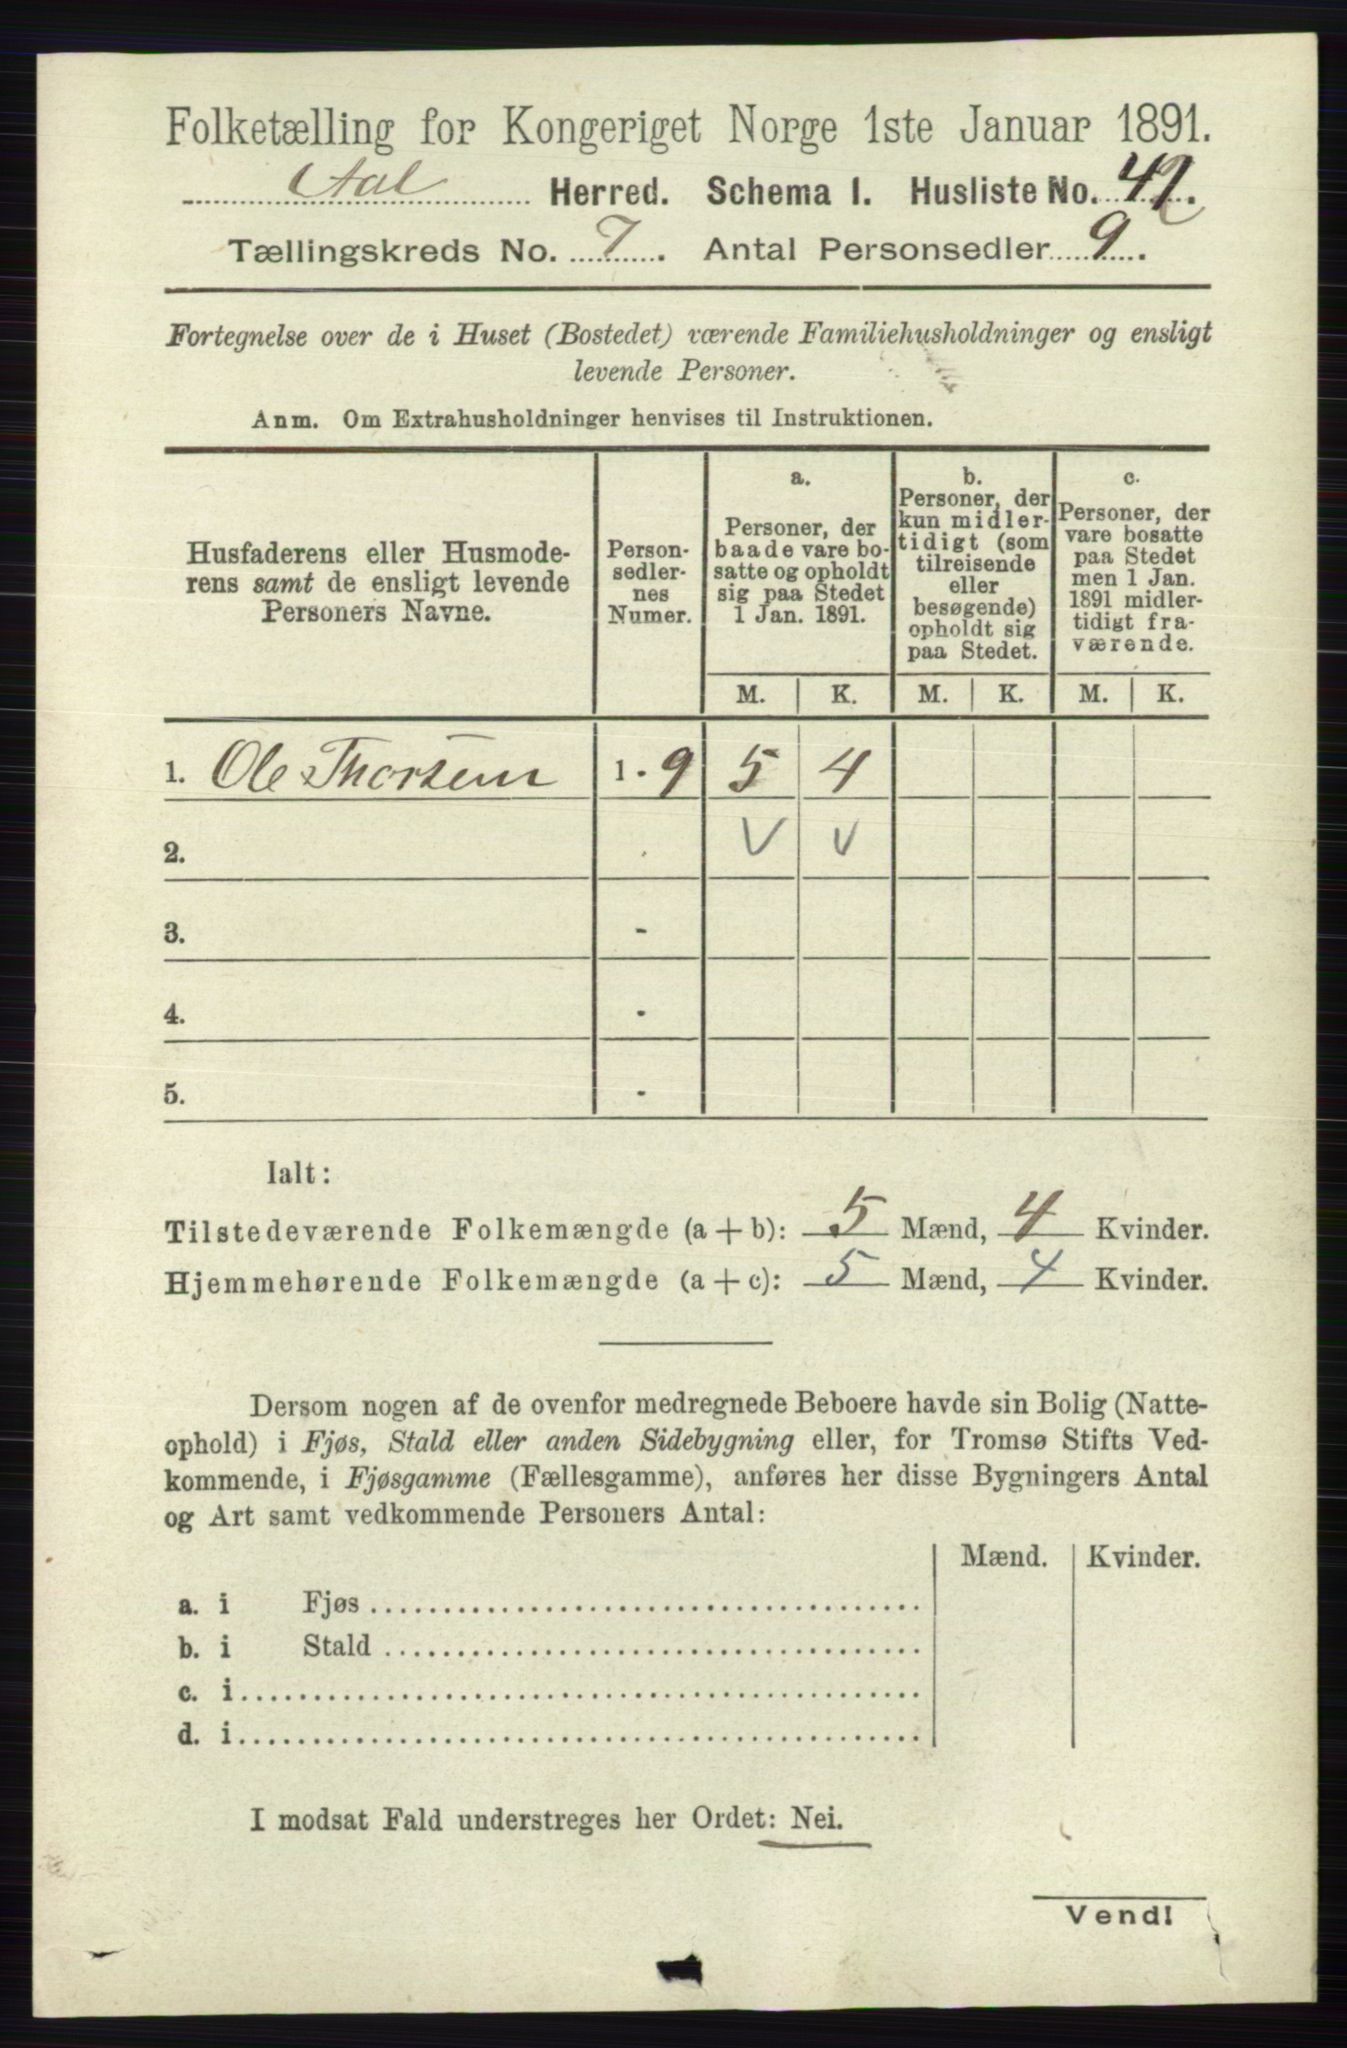 Folketælling for Kongeriget Norge 1ste Januar 1891.
Aal Herred. Schema I. Husliste No. 42.
Tællingskreds No. 7. Antal Personsedler 9.
Fortegnelse over de i Huset (Bostedet) værende Familiehusholdninger og ensligt
levende Personer.
Anm. Om Extrahusholdninger henvises til Instruktionen.
Husfaderens eller Husmode-
rens samt de ensligt levende
Personers Navne.
Person-
sedler-
nes
Numer.
a.
Personer, der
baade vare bo-
satte og opholdt
sig paa Stedet
1 Jan. 1891.
b.
Personer, der
kun midler-
tidigt (som
tilreisende
eller
besøgende)
opholdt sig
paa Stedet.
c.
Personer, der
vare bosatte
paa Stedet
men 1 Jan.
1891 midler-
tidigt fra-
værende.
M. K. M. K. M. K.
1. Ole Thorsen 1 - 9 5 4
2. V V
3. -
4. -
5. -
Ialt:
Tilstedeværende Folkemængde (a + b): 5 Mænd, 4 Kvinder.
Hjemmehørende Folkemængde (a + c): 5 Mænd, 4 Kvinder.
Dersom nogen af de ovenfor medregnede Beboere havde sin Bolig (Natte-
ophold) i Fjøs, Stald eller anden Sidebygning eller, for Tromsø Stifts Ved-
kommende, i Fjøsgamme (Fællesgamme), anføres her disse Bygningers Antal
og Art samt vedkommende Personers Antal:
Mænd. Kvinder.
a. i Fjøs
b. i Stald
c. i
d. i
I modsat Fald understreges her Ordet: Nei.
Vend!